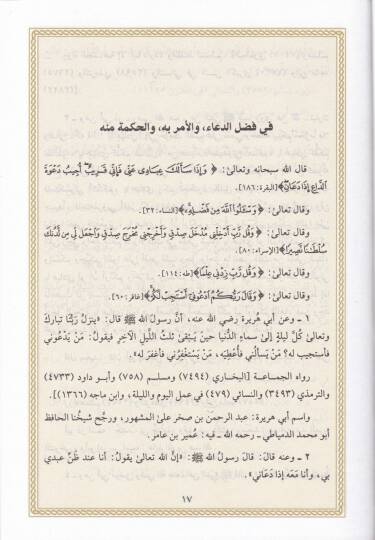 في فضل الدعاء، والأمر به، والحكمة منه
قال الله سبحانه وتعالى: ﴿ وَإِذَا سَأَلَكَ عِبَادِى عَنِّى فَإِنِّى قَرِيبٌ أُجِيبُ دَعْوَةَ
ٱلدَّاعِ إِذَا دَعَانِ ﴾ [البقرة: ١٨٦].
وقال تعالى: ﴿ وَسْـَٔلُوا۟ ٱللَّهَ مِن فَضْلِهِۦٓ ﴾ [النساء: ٣٢].
وقال تعالى: ﴿ وَقُل رَّبِّ أَدْخِلْنِى مُدْخَلَ صِدْقٍ وَأَخْرِجْنِى مُخْرَجَ صِدْقٍ وَٱجْعَل لِّى مِن لَّدُنكَ
سُلْطَٰنًا نَّصِيرًا ﴾ [الإسراء: ٨٠].
وقال تعالى: ﴿ وَقُل رَّبِّ زِدْنِى عِلْمًا ﴾ [طه: ١١٤].
وقال تعالى: ﴿ وَقَالَ رَبُّكُمُ ٱدْعُونِىٓ أَسْتَجِبْ لَكُمْ ﴾ [غافر: ٦٠].
١ ـ وعن أبي هريرة رضي الله عنه، أنَّ رسولَ الله ﷺ قال: «ينزلُ ربُّنا تباركَ
وتعالىٰ كُلَّ ليلةٍ إلىٰ سماءِ الدُّنيا حينَ يَبْقىٰ ثلثُ اللَّيلِ الآخرِ فيقولُ: مَنْ يَدْعُوني
فأستجيب له؟ مَنْ يَسألُني فأعْطِيَه، مَنْ يَسْتغْفِرُني فأغفرَ له».
رواه الجماعة [البخاري (٧٤٩٤) ومسلم (٧٥٨) وأبو داود (٤٧٣٣)
والترمذي (٣٤٩٣) والنسائي (٤٧٩) في عمل اليوم والليلة، وابن ماجه (١٣٦٦)].
واسم أبي هريرة: عبد الرحمن بن صخر علىٰ المشهور، ورجَّح شيخُنا الحافظ
أبو محمد الدمياطي ـ رحمه الله ـ فيه: عُمير بن عامر.
٢ ـ وعنه قالَ: قالَ رسولُ الله ﷺ: «إنَّ الله تعالىٰ يقولُ: أنا عند ظَنِّ عبدي
بي، وأنا مَعَه إذا دَعَاني».
١٧